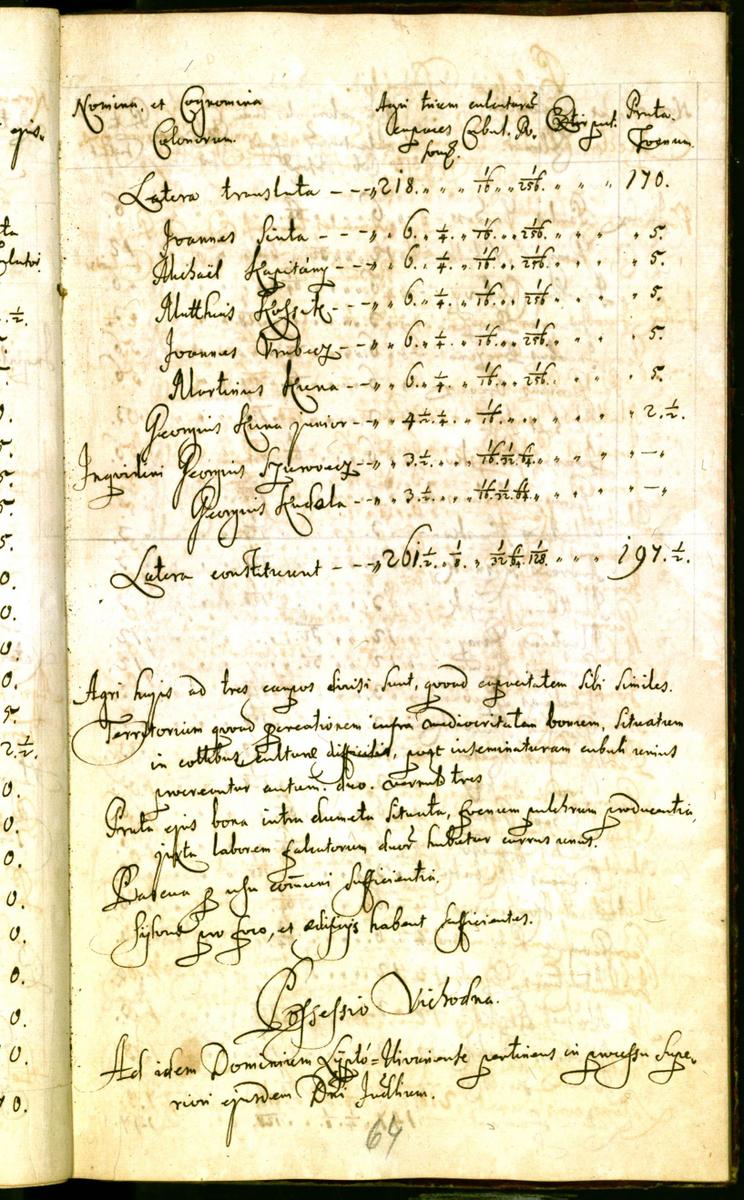 Nomina, et Cognomina
Colonorum.
Agri trium culturarū
Capaces Cubul. Po.
Extir.
Prata.
Foenum.
Latera translata - - „ 218. „ „ „ 1/16. „ „ 1/256. „ „ „ 170.
Joannes Sinta - - „ „ 6. „ 1/4. „ 1/16. „ „ 1/256. „ „ „ „ 5.
Michaël Kapitány - - „ „ 6. „ 1/4. „ 1/16. „ „ 1/256. „ „ „ „ 5.
Matthias - - „ „ 6. „ 1/4. „ 1/16. „ „ 1/256. „ „ „ „ 5.
Joannes - - „ „ 6. „ 1/4. „ 1/16. „ „ 1/256. „ „ „ „ 5.
Martinus Kuna - - „ „ 6. „ 1/4. „ 1/16. „ „ 1/256. „ „ „ „ 5.
Georgius Kuna junior - - „ „ 4 1/2. 1/4. „ 1/16. „ „ „ „ „ „ 2. 1/2.
Inquilini Georgius - - „ „ 3. 1/2. „ „ 1/16. 1/32. 1/64. „ „ „ „ „ — „
Georgius Kudela - - „ „ 3. 1/2. „ „ 1/16. 1/32. 1/64. „ „ „ „ „ — „
Latera constituunt - - „ 261. 1/2. „ 1/8. „ 1/32. 1/64. 1/128. „ „ „ 197. 1/2.
Agri hujus ad tres campos divisi sunt, quoad capacitatem sibi similes.
Territorium quoad procreationem infra mediocritatem bonum, situatum
in collibus culturæ difficilis, post inseminaturam cubuli unius
procreantur autum: duo. vernal: tres
Prata ejus bona intra dumeta situata, foenum pulchrum producentia,
juxta laborem falcatorum duorū habetur currus unus.
Pascua p usu com̄uni sufficientia.
Sylvas pro foco, et ædificÿs habent sufficientes.
Possessio Vichodna.
Ad idem Dominium Lÿptó-Ujvariense pertinens in processu Supe-
riori ejusdem Dnī Judlium.
64